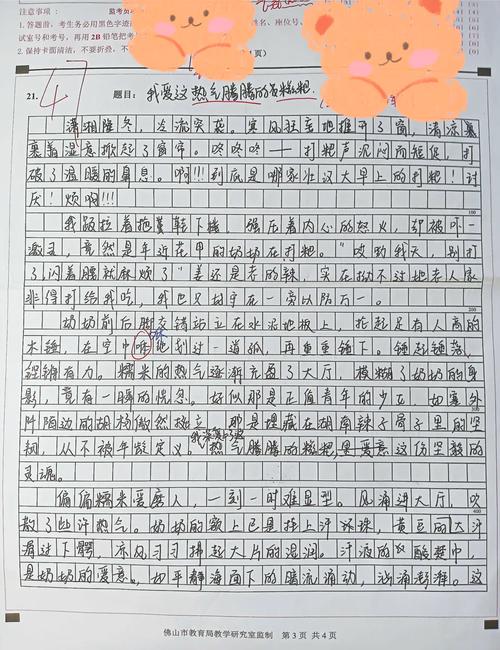 注意事项：
监考员
1. 答题前，考生务必用黑色字迹 姓名、座位号、
试室号和考号，再用2B铅笔把考
2. 保持卡面清洁，不要折叠，不 页）
21. 47 题目：我爱这热气腾腾的糍粑
潇湘隆冬，左流突袭。寒风狂妄地推开了窗，清凉裹
裹着湿意掀起了窗帘。咚咚咚——打粑声沉闷而短促，打
破了温暖的鼻息。啊!!!到底是哪家壮汉大早上的打粑！讨
厌！烦啊!!!
100
我趿拉着拖鞋下楼，强压着内心的怒火，却被吓一
激灵，竟然是年近花甲的奶奶在打粑。“哎呦我天，别打
了闪着腰就麻烦了”姜还是老的辣，实在拗不过她老人家
非得打给我吃，我也只好守在一旁以防万一。
200
奶奶前后脚交错站立在水泥地板上，抡起足有人高的
木锤，在空中 地划过一道弧，再重重锤下。锤起锤落，
铿锵有力。糯米的热气逐渐充盈了大厅，模糊了奶奶的身
影，竟有一瞬的恍惚。好似那是正值青年的少女，如塞外
300
阡陌边的胡杨傲然挺立，那是埋藏在胡南辣子骨子里的坚
韧，从不被年龄定义。热气腾腾的糍粑里，爱意这份坚毅的
我深爱
灵魂。
偏偏糯米爱磨人，一刻一时难显型。风涌进大厅，吹
400
散了些许热气。奶奶的额上已是挂上汗珠，黄豆的大汗
滑过下腭，凉风习习拂起大片的湿润。汗液的 酸楚中，
是奶奶的爱意，如平静海面下的暗流涌动，汹涌澎湃。这
佛山市教育局教学研究室监制 第 3 页 共 4 页